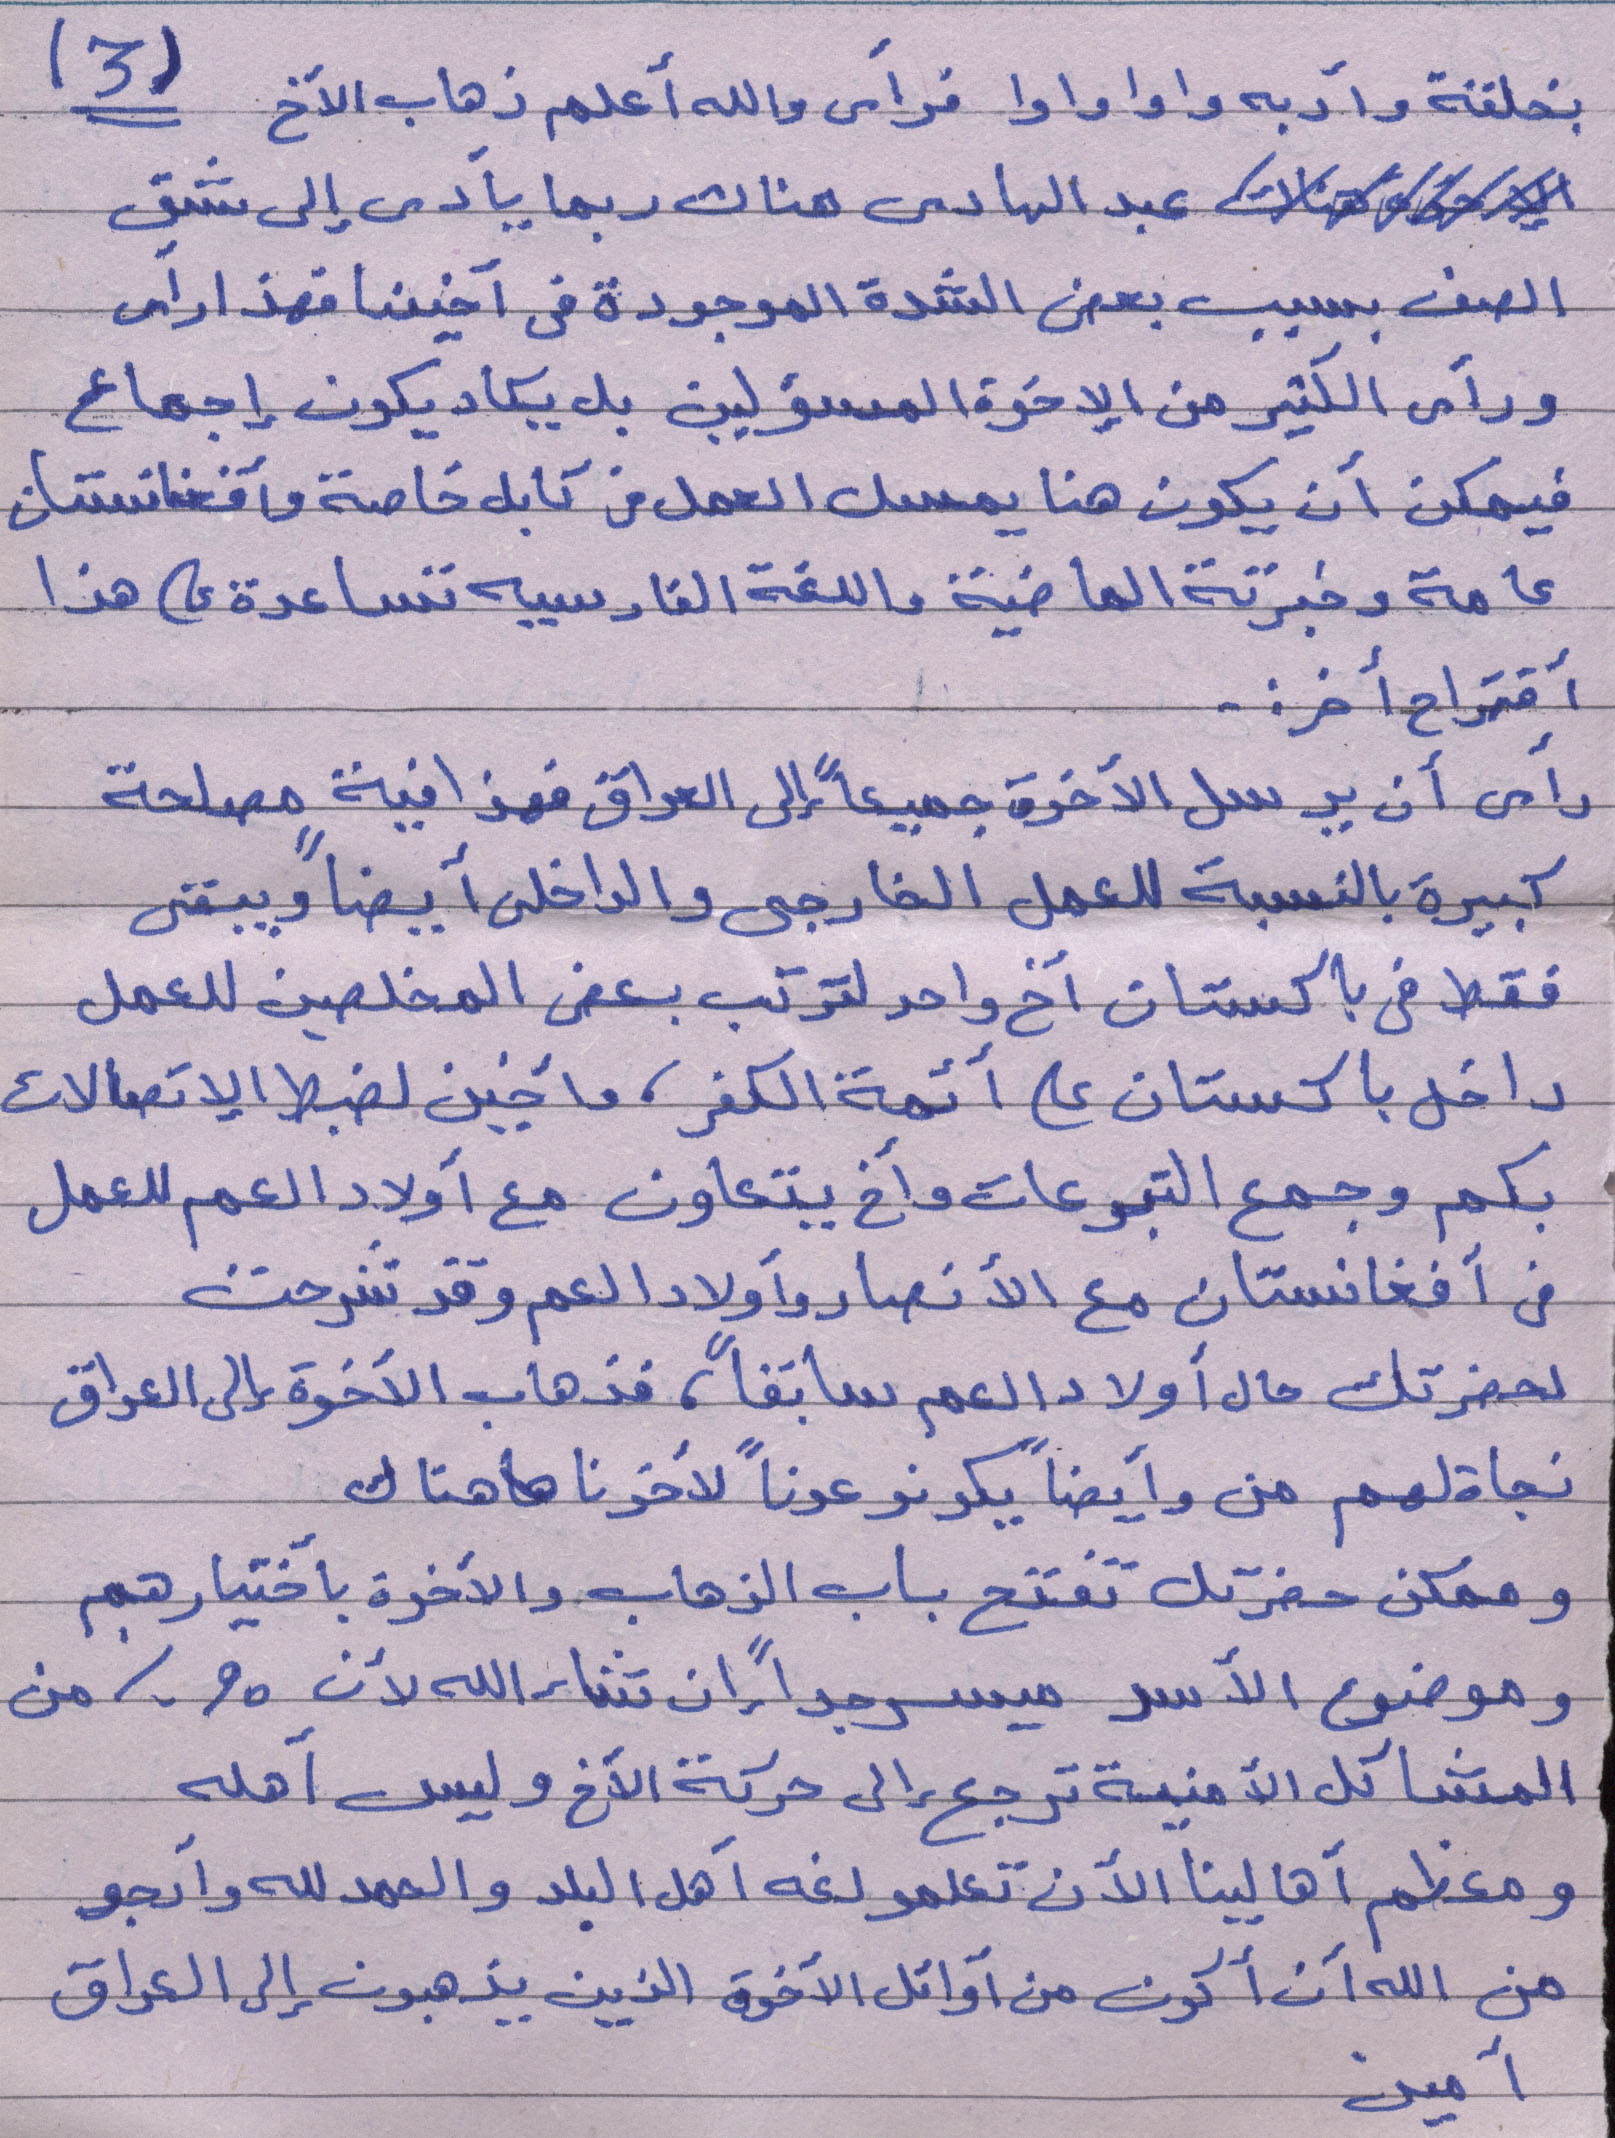 (3)
بخلقة وأدبه واواواوا فرأى والله أعلم ذهاب الأخ
عبد الهادى هناك ربما يأدى إلى شق
الصف بسبب بعض الشدة الموجودة فى أخينا فهذا رأى
ورأى الكثير من الإخوة المسؤلين بل يكاد يكون إجماع
فيمكن أن يكون هنا يمسك العمل فى كابل خاصة وأفغانستان
عامة وخبرتة الماضية واللغة الفارسيه تساعدة على هذا
أقتراح أخر :-
رأى أن يرسل الأخوة جميعاً إلى العراق فهذا فية مصلحة
كبيرة بالنسبة للعمل الخارجى والداخلى أيضاً ويبقى
فقط فى باكستان أخ واحد لترتب بعض المخلصين للعمل
داخل باكستان على أئمة الكفر، وأخين لضبط الإتصالات
بكم وجمع التبرعات وأخ يتعاون مع أولاد العم للعمل
فى أفغانستان مع الأنصار وأولاد العم وقد شرحت
لحضرتك حال أولاد العم سابقاً، فذهاب الأخوة إلى العراق
نجاة لهم من وأيضاً يكونو عوناً لأخونا هناك
وممكن حضرتك تفتح باب الذهاب والأخوة بأختيارهم
وموضوع الأسر ميسر جداً إن شاء الله لأن ٩٥ ٪ من
المشاكل الأمنية ترجع إلى حركة الأخ وليس أهله
ومعظم أهالينا الأن تعلمو لغه أهل البلد والحمد لله وأرجو
من الله أن أكون من أوائل الأخوة الذين يذهبون إلى العراق
أمين